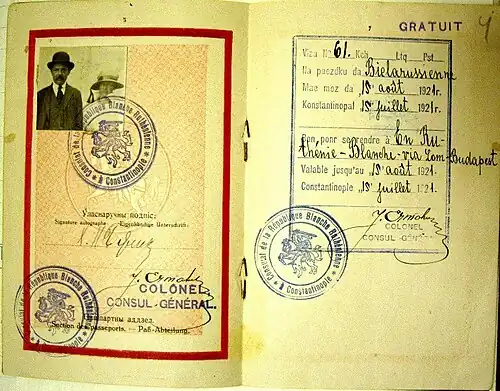 Consulat de la République Blanche Ruthénienne
à Constantinople
Уласнаручны подпіс:
Signature autographe — Eigenhändige Unterschrift:
COLONEL
CONSUL-GÉNÉRAL.
Пашпартны аддзел.
Section des passeports. — Paß-Abteilung.
Consulat de la République Blanche Ruthénienne
à Constantinople
7
GRATUIT
Viza № 61. Kch Ltq Pst
Na paezdku da Bielarussienne
Mae moz da 15 août 1921.
Konstantinopal 15 juillet 1921.
Bon pour se rendre à En Ru-
thénie-Blanche via Lom-Budapest
Valable jusqu'au 15 août 1921.
Constantinople, 15 juillet 1921.
COLONEL
CONSUL-GÉNÉRAL
Consulat de la République Blanche Ruthénienne
à Constantinople